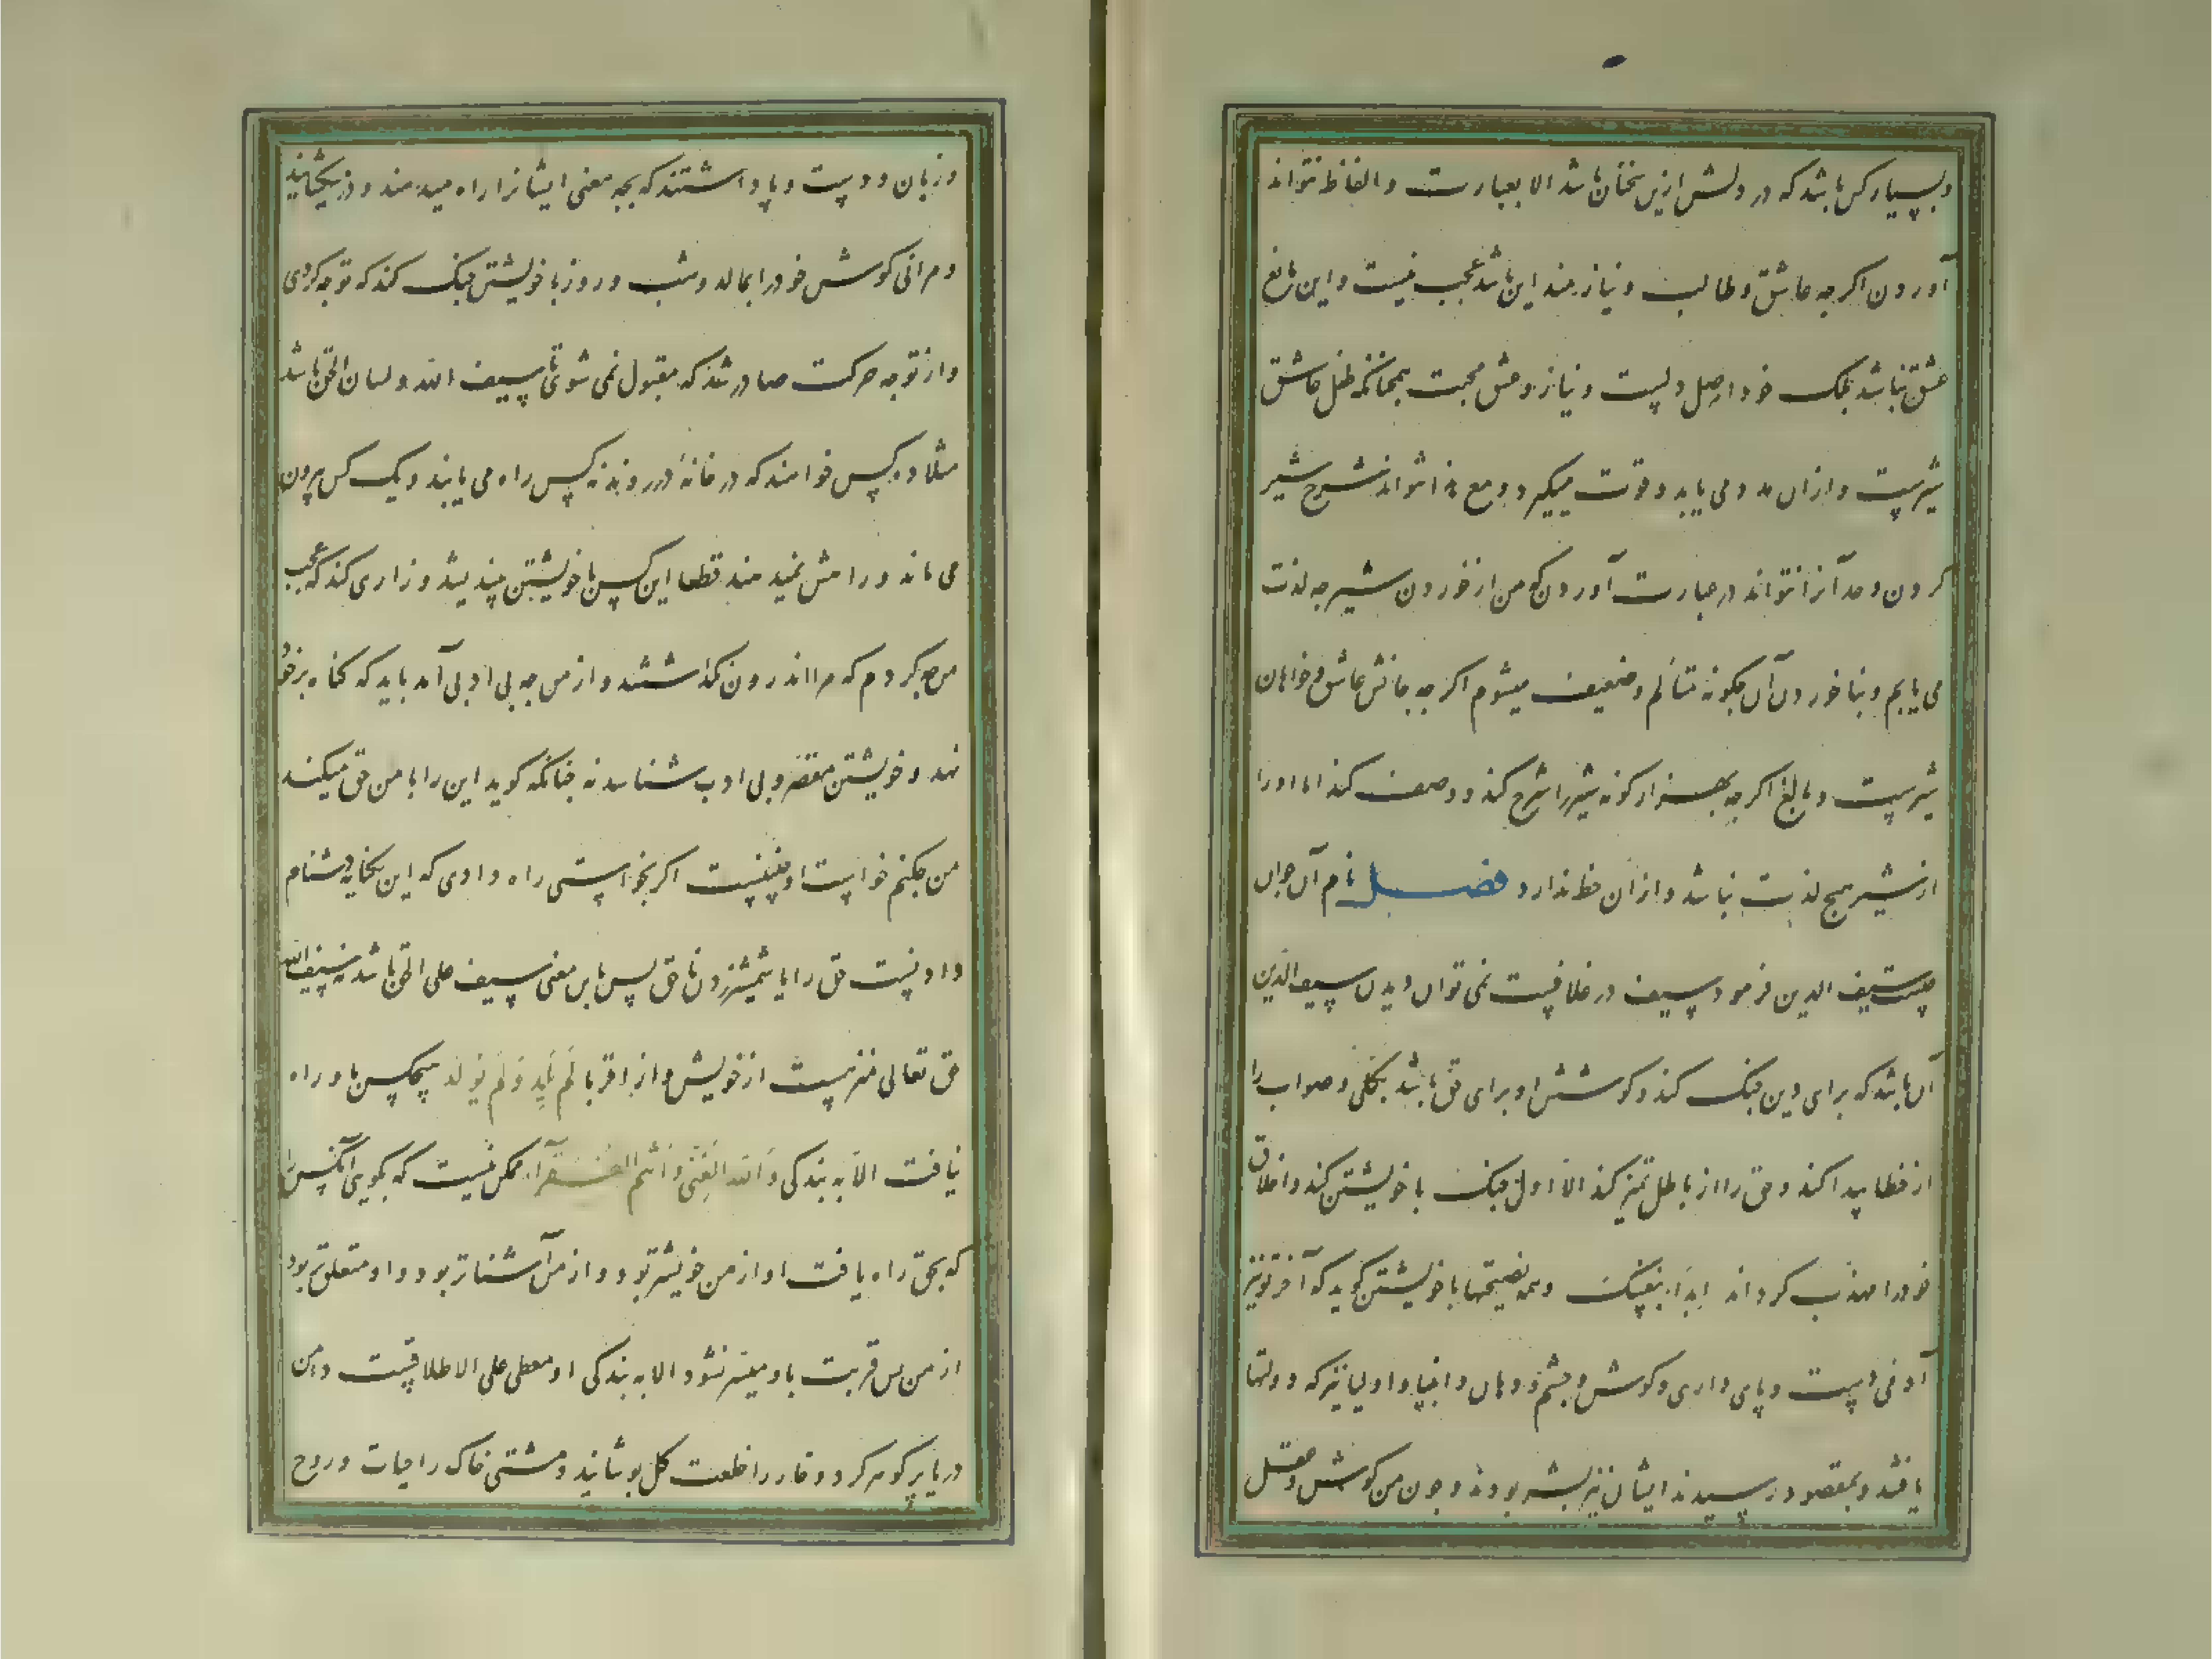 و بسیار کس باشد که در دلش ازین سخنان باشد الا بعبارت و الفاظ نتواند
آوردن اگرچه عاشق و طالب و نیازمند این باشد عجب نیست و این مانع
عشق نباشد بلک خود اصل دلست و نیاز و عشق و محبت همچنانکه طفل عاشق
شیرست و از آن مدد می یابد و قوت میگیرد و مع هذا نتواند شرح شیر
کردن و حد آنرا نتواند در عبارت آوردن که من از خوردن شیر چه لذت
می یابم و بنا خوردن آن چگونه متالم و ضعیف میشوم اگرچه جانش عاشق و خواهان
شیرست و بالغ اگرچه بهزار گونه شیر را شرح کند و وصف کند اما او را
از شیر هیچ لذت نباشد و از آن حظ ندارد فصل نام آن جوان
چیست سیف الدین فرمود سیف در غلافست نمی توان دیدن سیف الدین
آن باشد که برای دین جنگ کند و کوشش او برای حق باشد بکلی و صواب را
از خطا پیدا کند و حق را از باطل تمیز کند الا اول جنگ با خویشتن کند و اخلاق
خود را مهذب گرداند ابدا بنفسک و همه نصیحتها با خویشتن گوید که آخر تو نیز
آدمی دست و پای داری و گوش و چشم و دهان و انبیا و اولیا نیز که دولتها
یافتند و بمقصود رسیدند ایشان نیز بشر بودند و چون من گوش و عقل
و زبان و دست و پا داشتند که بچه معنی ایشانرا راه میدهند و در میگشایند
و مرا نی گوش خود را بمالد و شب و روز با خویشتن جنگ کند که تو چه کردی
و از تو چه حرکت صادر شد که مقبول نمی شوی تا سیف الله و لسان الحق باشد
مثلا ده کس خواهند که در خانه در روند نه کس راه می یابند و یک کس بیرون
می ماند و راهش نمیدهند قطعا این کس با خویشتن بیندیشد و زاری کند که عجب
من چه کردم که مرا اندرون نگذاشتند و از من چه بی ادبی آمد باید که گناه بر خود
نهد و خویشتن مقصر و بی ادب شناسد نه چنانکه گوید این را با من حق میکند
من چکنم خواست او چنینست اگر بخواستی راه دادی که این کنایه دشنام
دادنست حق را با شمشیر زدن با حق پس باین معنی سیف علی الحق باشد نه سیف الله
حق تعالی منزهست از خویش و از اقربا لَم یَلِد وَ لَم یُولَد هیچکس باو راه
نیافت الا به بندگی وَ اللّه الغَنی وَ انتم الفقرآء ممکن نیست که بگویی آنکس را
که بحق راه یافت او از من خویشتر بود و از من آشناتر بود و او متعلق تر بود
از من پس قربت باو میسر نشود الا به بندگی او معطی علی الاطلاقست دامن
دریا پر گوهر کرد و خار را خلعت گل پوشانید و مشتی خاک را حیات و روح